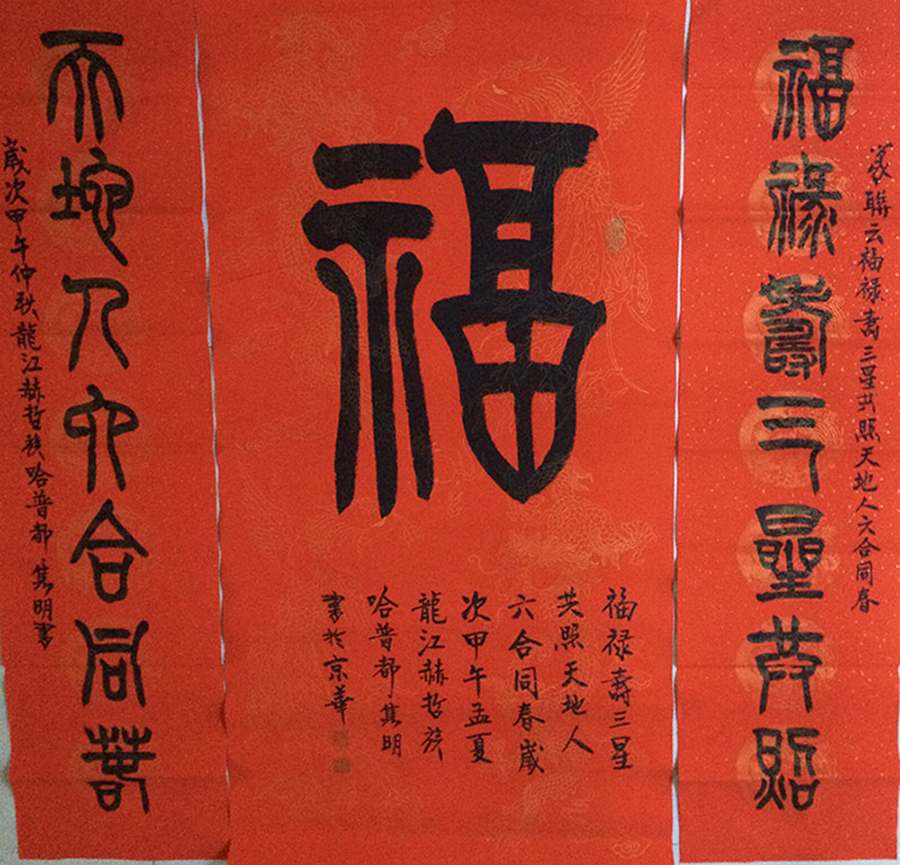 篆聯云福禄壽三星共照天地人六合同春
福禄壽三星共照
福
福禄壽三星
共照天地人
六合同春歲
次甲午孟夏
龍江赫哲族
哈普都隽明
書於京華
天地人六合同春
歲次甲午仲秋龍江赫哲族哈普都隽明書